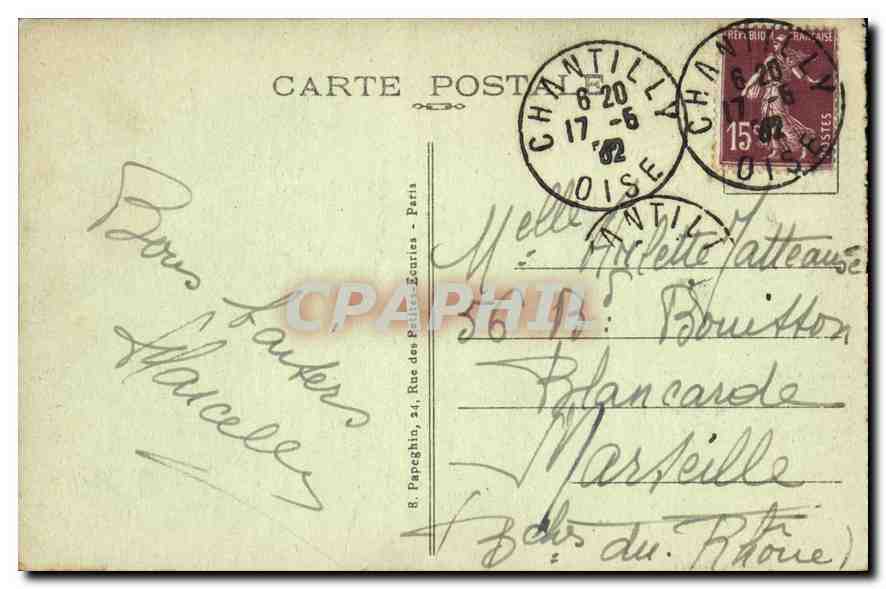 CARTE POSTALE
CHANTILLY
6 20
17 -6
32
OISE
REPUBLIQUE FRANCAISE
15c
POSTES
CHANTILLY
6 20
17 -6
32
OISE
ANTILL
Bons baisers
Marcelle
8. Papeghin, 24, Rue des Petites-Ecuries - Paris
CPAPHIL
Melle Arlette
56 Bd Bouisson
Blancarde
Marseille
(Bches du Rhône)